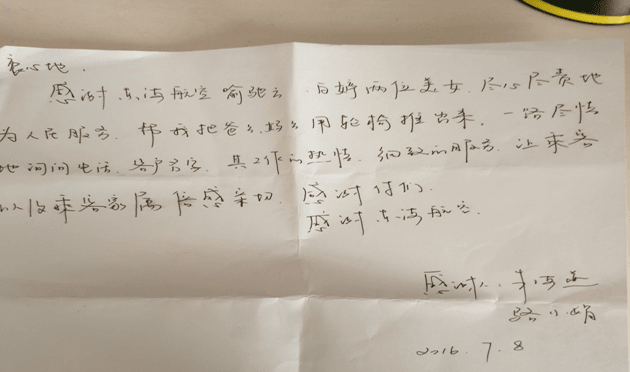 衷心地.
感谢东海航空喻艳云、白婷两位美女,尽心尽责地
为人民服务.帮我把爸爸,妈妈用轮椅推出来,一路尽情
地问问,其工作的热情,细致的服务,让乘客
以及乘客家属倍感亲切.感谢你们.
感谢东海航空.
感谢人:
路小娟
2016.7.8